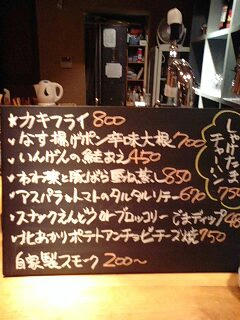 ★カキフライ 800
・なす揚げポン辛味大根 700
・いんげんの鮭あえ 450
・豚ばら 蒸し 850
・アスパラとトマトのタルタルソテー 670
・スナックえんどうとブロッコリー ごまディップ
・北あかりポテトアンチョビチーズ焼 750
自家製スモーク 200〜
しゃけたま
チャーハン
750